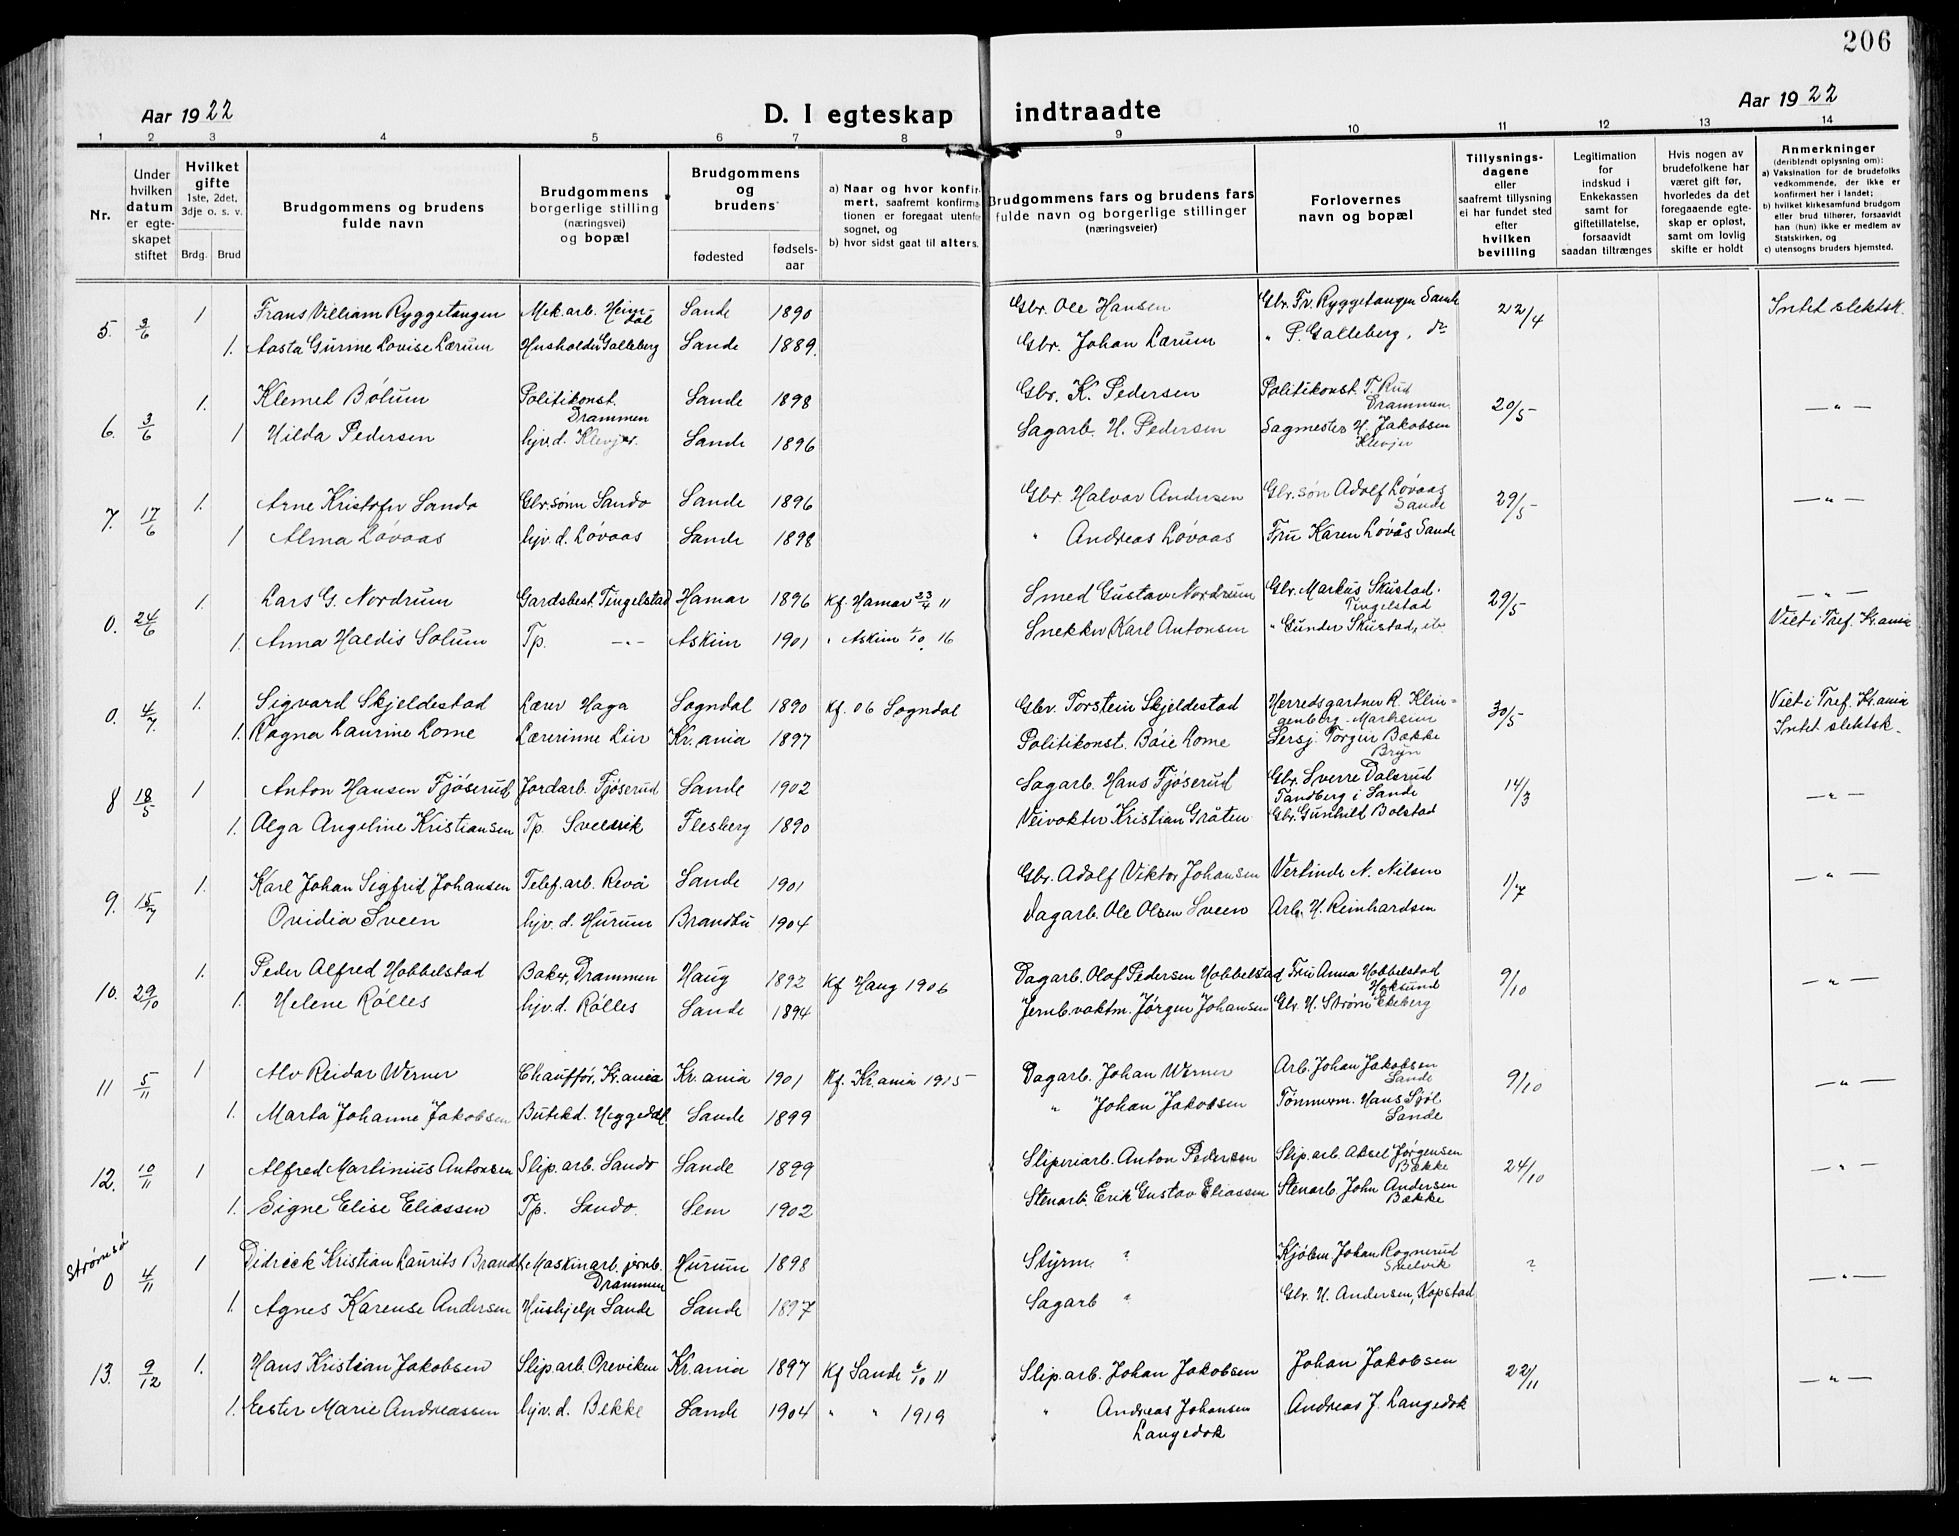 206
Aar 1922
D. I egteskap indtraadte
Aar 1922
1 2 3 4 5 6 7 8 9 10 11 12 13 14
Nr.
Under hvilken datum er egteskapet stiftet
Hvilket gifte 1ste, 2det, 3dje o. s. v.
Brdg. Brud
Brudgommens og brudens fulde navn
Brudgommens borgerlige stilling (næringsvei) og bopæl
Brudgommens og brudens
fødested
fødselsaar
a) Naar og hvor konfirmert, saafremt konfirmationen er foregaat utenfor sognet, og
b) hvor sidst gaat til alters.
Brudgommens fars og brudens fars fulde navn og borgerlige stillinger (næringsveier)
Forlovernes navn og bopæl
Tillysningsdagene eller saafremt tillysning ei har fundet sted efter hvilken bevilling
Legitimation for indskud i Enkekassen samt for giftetillatelse, forsaavidt saadan tiltrænges
Hvis nogen av brudefolkene har været gift før, hvorledes da det foregaaende egteskap er opløst, samt om lovlig skifte er holdt
Anmerkninger (deriblandt oplysning om):
a) Vaksination for de brudefolks vedkommende, der ikke er konfirmert her i landet;
b) hvilket kirkesamfund brudgom eller brud tilhører, forsaavidt han (hun) ikke er medlem av Statskirken, og
c) utensogns bruders hjemsted.
5. 3/6 1 Frans Villiam Ryggetangen Mek.arb. Heimdal Sande 1890 Gbr. Ole Hansen Gbr. Fr. Ryggetangen Sande 22/4 Intet slektsk.
1. Aasta Gurine Lovise Lærum Husholder Galleberg Sande 1889. Gbr. Johan Lærum " P. Galleberg, do
6. 3/6 1. Klemet Bølum Politikonst. Drammen Sande 1898 Gbr. K. Pedersen Politikonst. T. Rud Drammen. 20/5 — " —
1 Hilda Pedersen hjv. d. Klevjer. Sande 1896 Sagarb. H. Pedersen Sagmester H. Jakobsen Klevjer
7. 17/6 1. Arne Kristofer Sando Gbr.sønn Sando Sande 1896 Gbr. Halvor Andersen Gbr. søn Adolf Løvaas Sande 29/5 — " —
1 Alma Løvaas hjv. d. Løvaas Sande 1898 " Andreas Løvaas Fru Karen Løvås Sande
0. 24/6 1. Lars G. Nordrum Gardsbest. Tingelstad Hamar 1896 Kf. Hamar 23/4 11 Smed Gustav Nordrum Gbr. Markus Skustad. Tingelstad 29/5 — " —
1. Anna Haldis Solum Tp. -"- Askim 1901 " Askim 1/10 16 Snekker Karl Antonsen " Gunder Skustad, Viet i Tref. Kr.ania
0. 4/7. 1. Sigvard Skjeldestad Lærer Haga Sogndal 1890 Kf. 06 Sogndal Gbr. Torstein Skjeldestad Herredsgartner R. Klingenberg - Marheim 30/5 Viet i Tref. Kr.ania
1. Ragna Laurine Lome Lærerinne Lier Kr.ania 1897 Politikonst. Boie Lome Sersj. Torgeir Bakke Bryn Intet slektsk.
8 18/5 1 Anton Hansen Fjøserud Jordarb. Fjøserud Sande 1902 Sagarb. Hans Fjøserud Gbr. Sverre Dalsrud Tandberg i Sande 14/3 — " —
1. Olga Angeline Kristiansen Tp. Svelvik Flesberg 1890 Veivokter Kristian Gråten Gbr. Gunhild Bolstad
9. 15/7 1. Karl Johan Sigfrid Johansen Telef.arb. Revå Sande 1901 Gbr. Adolf Viktor Johansen Vertinde N. Nilsen 1/7 — " —
Ovidia Sveen hjv. d. Hurum Brandbu 1904 Dagarb. Ole Olsen Sveen Arb. H. Reinhardsen
10. 29/10 1. Peder Alfred Hobbelstad Baker, Drammen Haug 1892 Kf Haug 1906 Dagarb. Olof Pedersen Hobbelstad Fru Anna Hobbelstad Hoksund 9/10 — " —
1. Helene Rølles hjv. d. Rølles Sande 1894 Jernb.voktm. Jørgen Johansen Gbr. H. Strøm Ekeberg
11 5/11 1 Alv Reidar Werner Chauffør, Kr.ania Kr.ania 1901 Kf. Kr.ania 1915 Dagarb. Johan Werner Arb. Johan Jakobsen Sande 9/10 — " —
1. Marta Johanne Jakobsen Butekd. Heggedal Sande 1899 " Johan Jakobsen Tømmerm. Hans Sjøl Sande
12. 10/11 1 Alfred Martinius Antonsen Slip.arb. Sando Sande 1899 Sliperiarb. Anton Pedersen Slip.arb. Aksel Jørgensen Bække 24/10 — " —
1. Signe Elise Eliassen Tp. Sando. Sem 1902 Stenarb. Erik Gustav Eliassen Stenarb. John Andersen Bække
Strømsø 0 4/11 1 Didrick Kristian Laurits Brandt Maskinarb. jernb. Drammen Hurum 1898 Styrm. ? Kjøbm. Johan Rognerud Svelvik ? — " —
1. Agnes Karense Andersen Hushjelp Sande Sande 1897 Sagarb ? Gbr. H. Andersen, Kopstad
13. 9/12 1. Hans Kristian Jakobsen Slip.arb. Oreviken Kr.ania 1897 Kf Sande 6/10 11 Slip.arb. Johan Jakobsen Johan Jakobsen 22/11 — " —
1. Ester Marie Andreassen hjv. d. Bekke Sande 1904 " " 1919 " Andreas Johansen Langedok Andreas J. Langedok